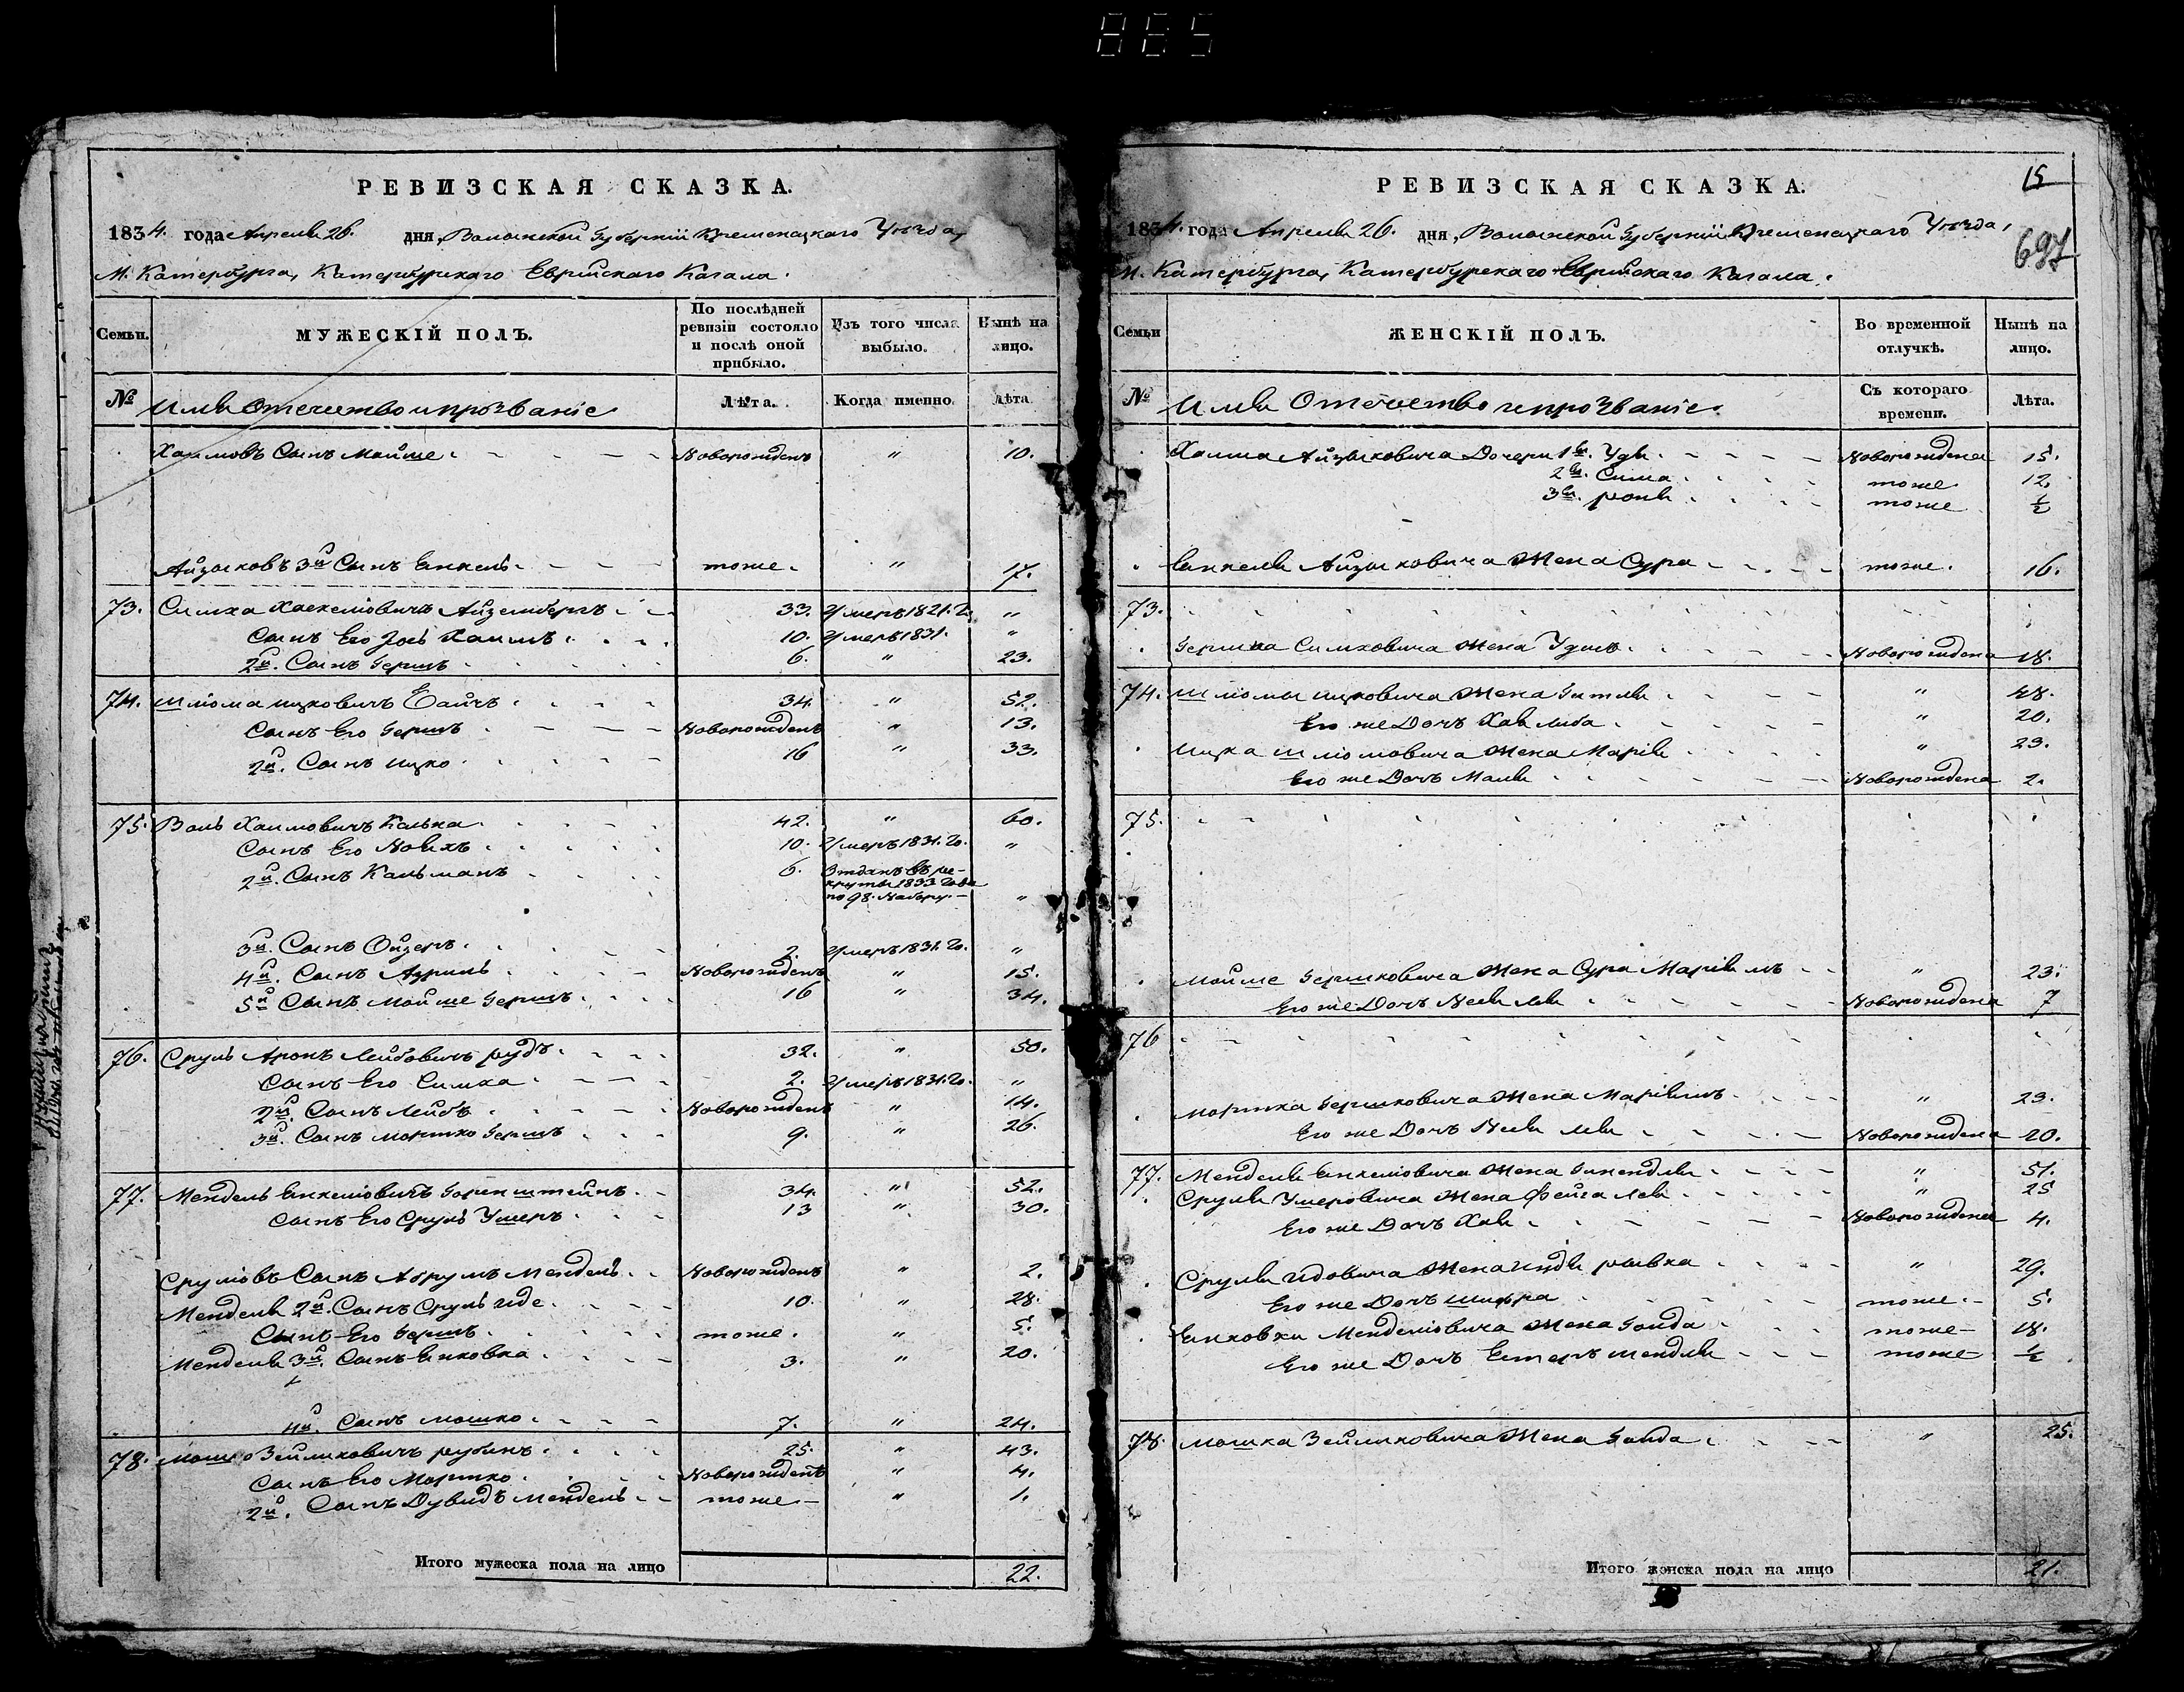 885
РЕВИЗСКАЯ СКАЗКА.
1834. года Апреля 26. дня, Волынской Губернiи Кременецкаго Уѣзда,
М. Катербурга, Катербурскаго Еврейскаго Кагала.
Семьи. МУЖЕСКIЙ ПОЛЪ. По послѣдней ревизiи состояло и послѣ оной прибыло. Изъ того числа выбыло. Нынѣ на лицо.
№ Имя Отечество и прозванiе Лѣта. Когда именно. Лѣта
Хаимовъ Сынъ Мойше. Новорожденъ " 10.
Айзыковъ 3й Сынъ Енкель. тоже. " 17.
73. Симха Хаскелiовичъ Айземберъ 33. Умеръ 1821. г. "
Сынъ Его Хаимъ. 10. Умеръ 1831. "
2й. Сынъ Гершъ 6. " 23.
74. Шлiома Ицковичъ 34. " 52.
Сынъ Его Гершъ Новорожденъ " 13.
2й. Сынъ Ицко. 16 " 33.
75. Воль Хаимовичъ Калька. 42. " 60.
Сынъ Его Новахъ. 10. Умеръ 1831. Го. "
2й. Сынъ Кальманъ 6. Отданъ въ рекруты 1833 Года по 98. Набору. "
3й. Сынъ Ойзеръ. 2. Умеръ 1831. Го. "
4й. Сынъ Азриль Новорожденъ " 15.
5й Сынъ Мойше Гершъ. 16 " 34.
76. Сруль Аронъ Лейбовичъ рудъ. 32. " 50.
Сынъ Его Симха. 2. Умеръ 1831. Го. "
2й. Сынъ Лейбъ Новорожденъ " 14.
3й. Сынъ Мортко Гершъ 9. " 26.
77. Мендель Енкелiовичъ Горенштейнъ. 34. " 52.
Сынъ Его Сруль Ушеръ. 13 " 30.
Срулiовъ Сынъ Абрумъ Мендель. Новорожденъ " 2.
Менделя 2й. Сынъ Сруль Иде. 10. " 28.
Сынъ Его Гершъ. тоже. " 5.
Менделя 3й. Сынъ Енковка 3. " 20.
4й. Сынъ Мошко. 7. " 24.
78. Мошко Зейликовичъ рубинъ. 25. " 43.
Сынъ Его Мортко. Новорожденъ " 4.
2й. Сынъ Дувидъ Мендель тоже " 1.
Итого мужеска пола на лицо 22.
15
697
РЕВИЗСКАЯ СКАЗКА.
1834. года Апреля 26. дня, Волынской Губернiи Кременецкаго Уѣзда,
М. Катербурга, Катербурскаго Еврейскаго Кагала.
Семьи ЖЕНСКIЙ ПОЛЪ. Во временной отлучкѣ. Нынѣ на лицо.
№ Имя Отечество и прозванiе. Съ котораго времени. Лѣта.
Хаима Айзыковича Дочери 1я. Удя. Новорождена 15.
2я. Сима тоже. 12.
3я. роня тоже 1/2
Енкеля Айзыковича Жена Сура тоже. 16.
73.
Гершка Симховича Жена Новорождена 18.
74. Шлiомы Ицковича Жена Гитля " 48.
Его же Дочъ Хая Люба " 20.
Ицка Шлiомовича Жена Марiя " 23.
Его же Дочъ Маля Новорождена 2.
75.
Мойше Гершковича Жена Сура Марiямъ " 23.
Его же Дочъ Лея Новорождена 7
76
Мортка Гершковича Жена Марiямъ. " 23.
Его же Дочъ Лея Новорождена 20.
77. Менделя Енкелiовича Жена Гинендля " 51.
Сруля Ушеровича Жена Фейга Лея " 25
Его же Дочъ Хая Новорождена 4.
Сруля Идовича Жена Индя рывка " 29.
Его же Дочъ Шифра тоже. 5.
Енковки Менделiовича Жена Гольда тоже 18.
Его же Дочъ Естеръ Мендля тоже 1/2
78. Мошка Зейликовича Жена Гольда " 25.
Итого женска пола на лицо 21.